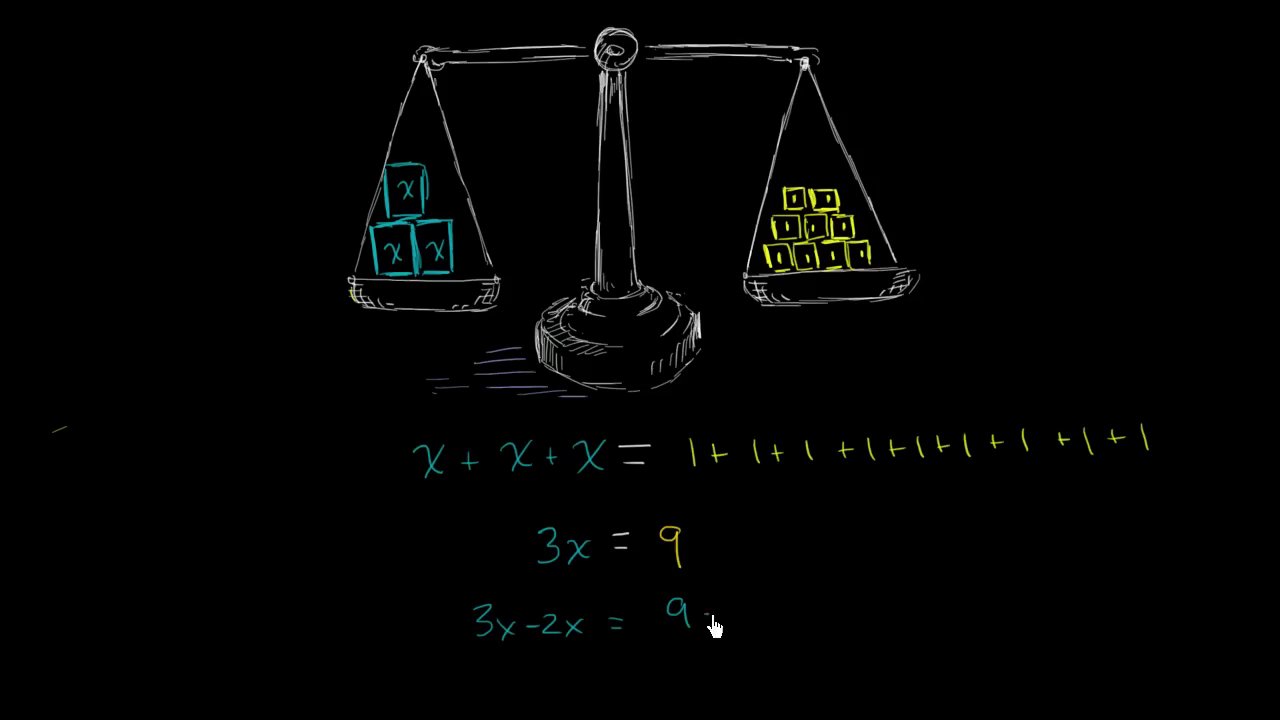 x
x x
1 1
1 1 1
1 1 1 1
x + x + x = 1 + 1 + 1 + 1 + 1 + 1 + 1 + 1 + 1
3x = 9
3x - 2x = 9 -